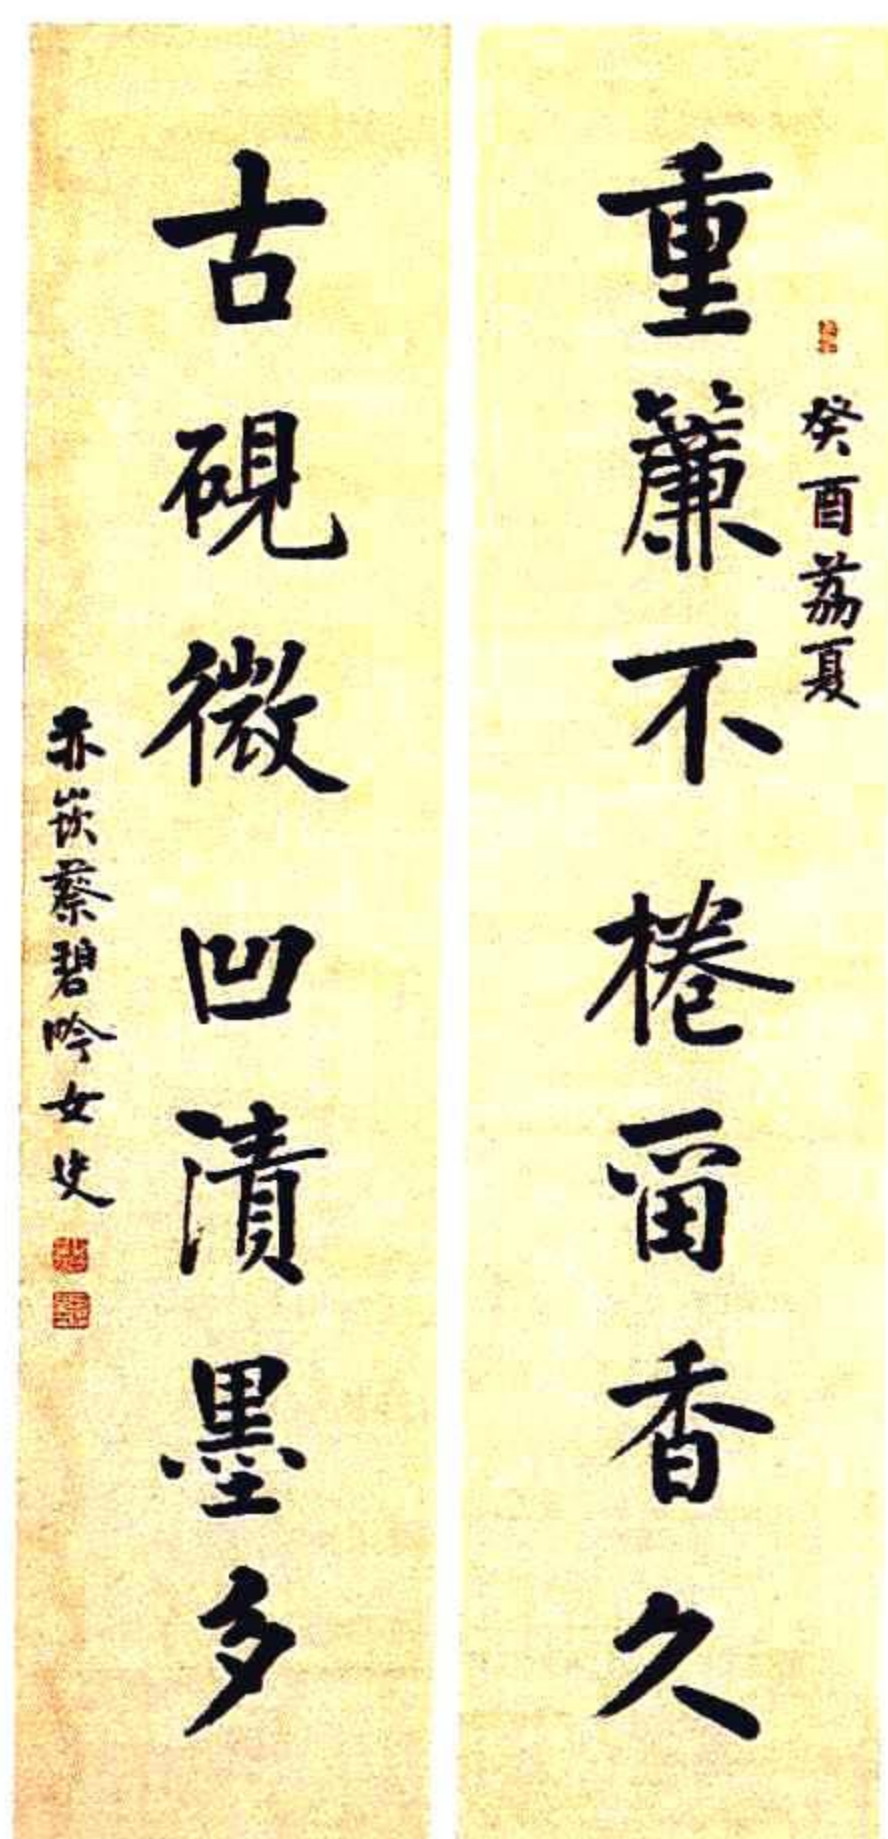 重簾不捲畱香久
癸酉荔夏
古硯微凹漬墨多
赤崁蔡碧吟女史